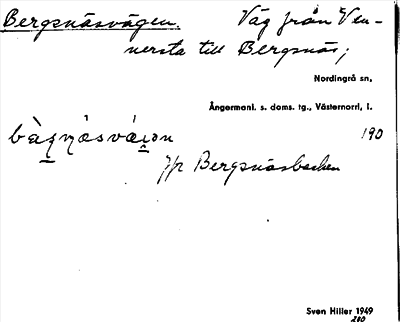 Bergsnäsvägen. Väg från Ven-
nersta till Bergsnäs;
Nordingrå sn,
Ångermanl. s. doms. tg., Västernorrl. l.
190
Jfr Bergsnäsbacken
Sven Hiller 1949
200